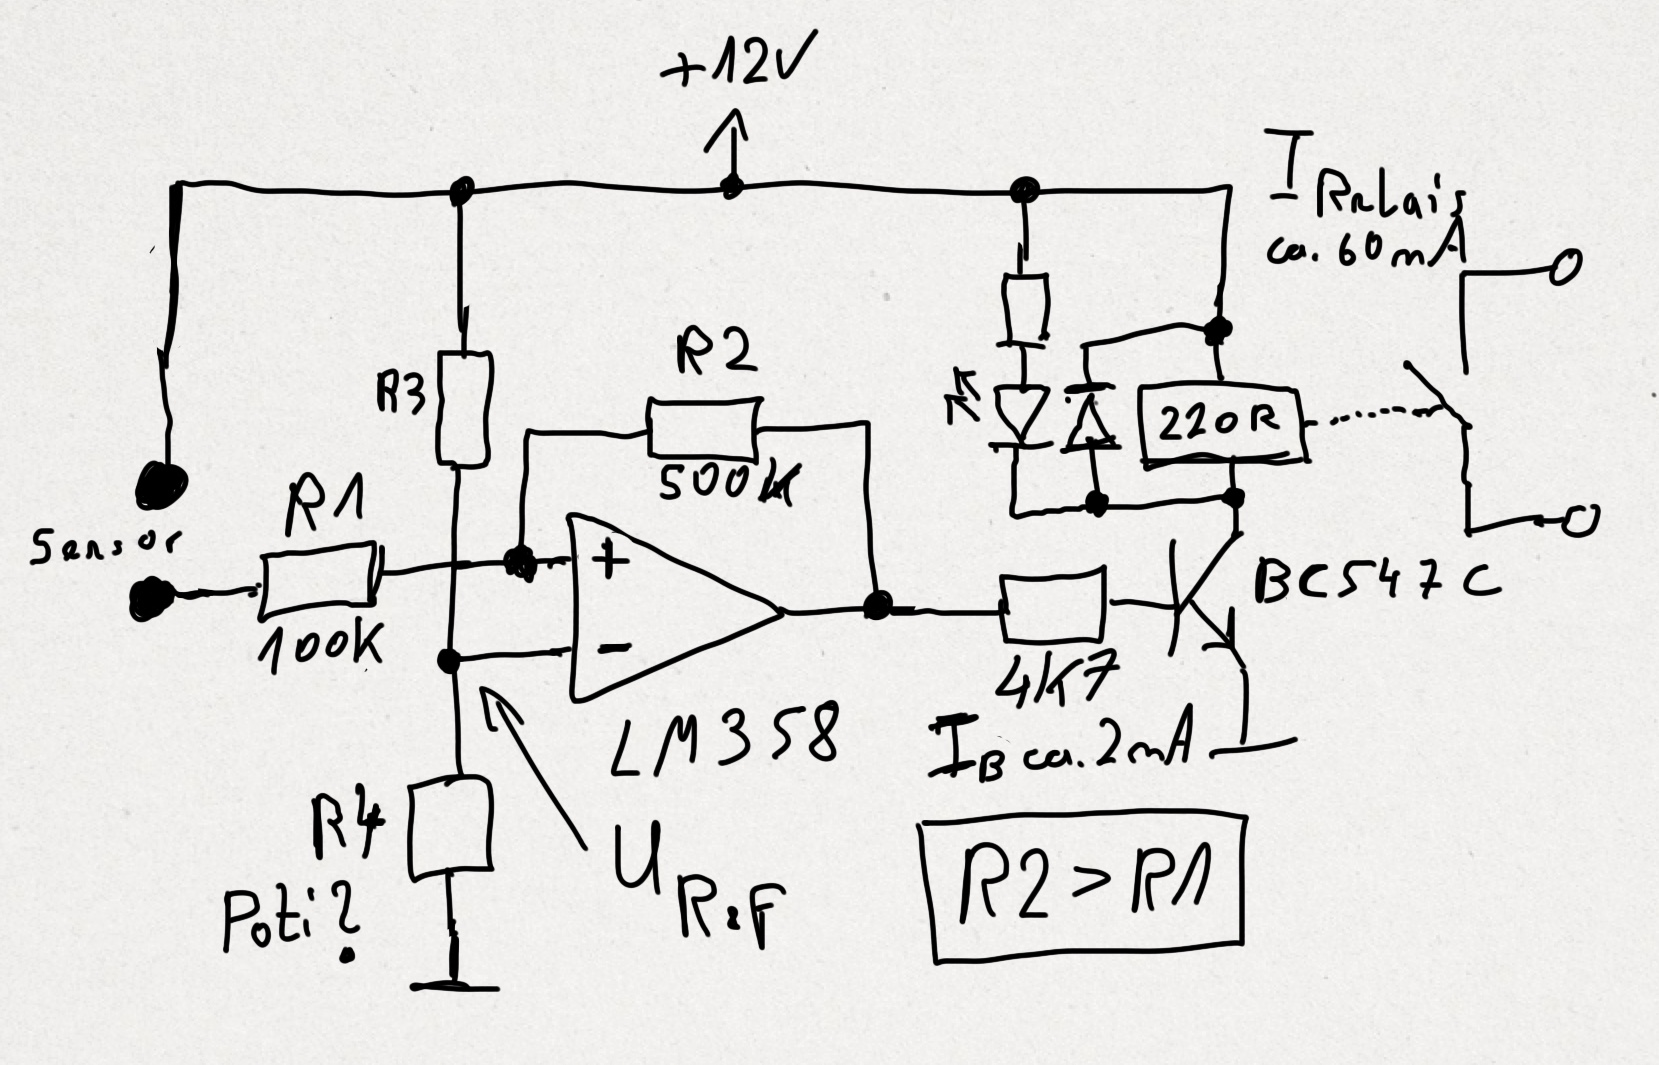 +12V
I Relais
ca. 60mA
R3
R2
500K
220R
R1
Sensor
100K
+
-
BC547C
4K7
LM358
IB ca. 2mA
R4
Poti?
URef
R2 > R1